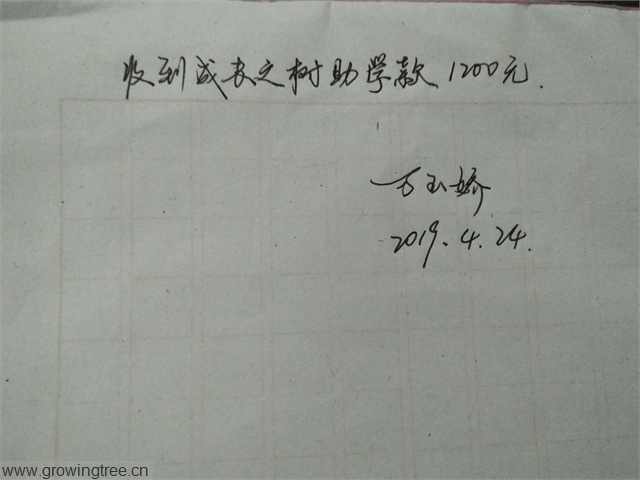 收到成长之树助学款1200元.
万玉娇
2019.4.24.
www.growingtree.cn